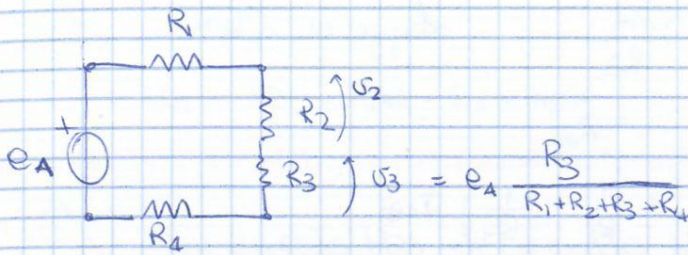 R₁
+
e_A
R₂
v₂
R₃
v₃ = e_A R₃ / (R₁+R₂+R₃+R₄)
R₄